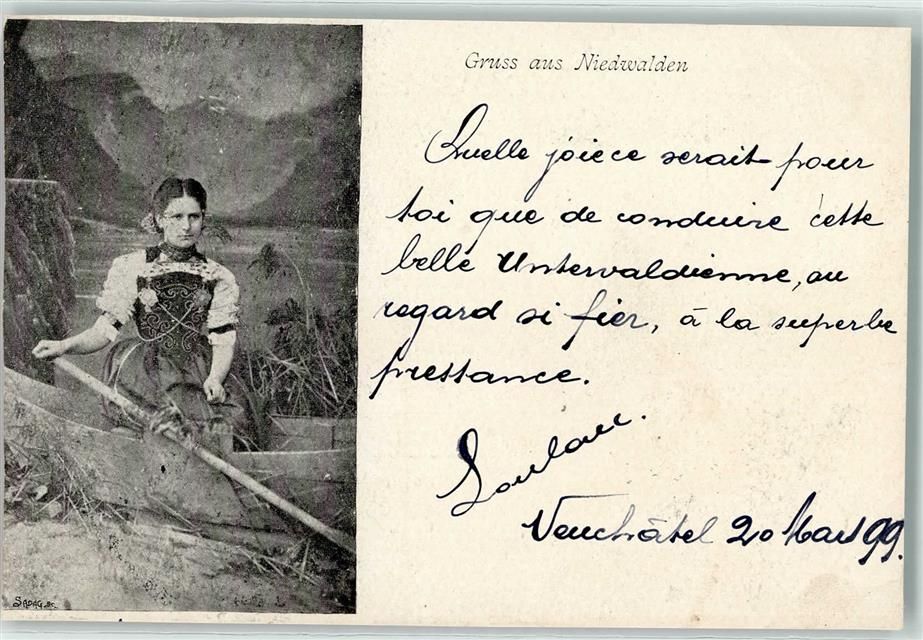 Gruss aus Niedwalden
Quelle joiece serait pour
toi que de conduire cette
belle Untervaldienne, au
regard si fier, à la superbe
prestance.
Loulou.
Neuchâtel 20 Mars 99.
SADAG